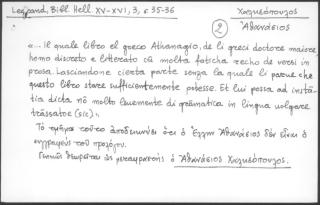 Legrand, Bibl. Hell. XV-XVI, 3, σ 35-36
Χαλκεόπουλος
Ἀθανάσιος
2
«... Il quale libro el greco Athanagio, de li greci doctore maiore
homo discreto e litterato cũ molta faticha recho de versi in
prosa. Lasciandone cierta parte senza la quale li parue che
questo libro stare sufficientemente potesse. Et lui possa ad instã-
tia dicta nõ molto lõuemente di grãmatica in lingua volgare
trãssator (sic).
Τὸ τμῆμα τοῦτο ἀποδεικνύει ὅτι ὁ Ἕλλην Ἀθανάσιος δὲν εἶναι ὁ
συγγραφεὺς τοῦ προλόγου.
Γενικῶς θεωρεῖται ὡς μεταφραστὴς ὁ Ἀθανάσιος Χαλκεόπουλος.